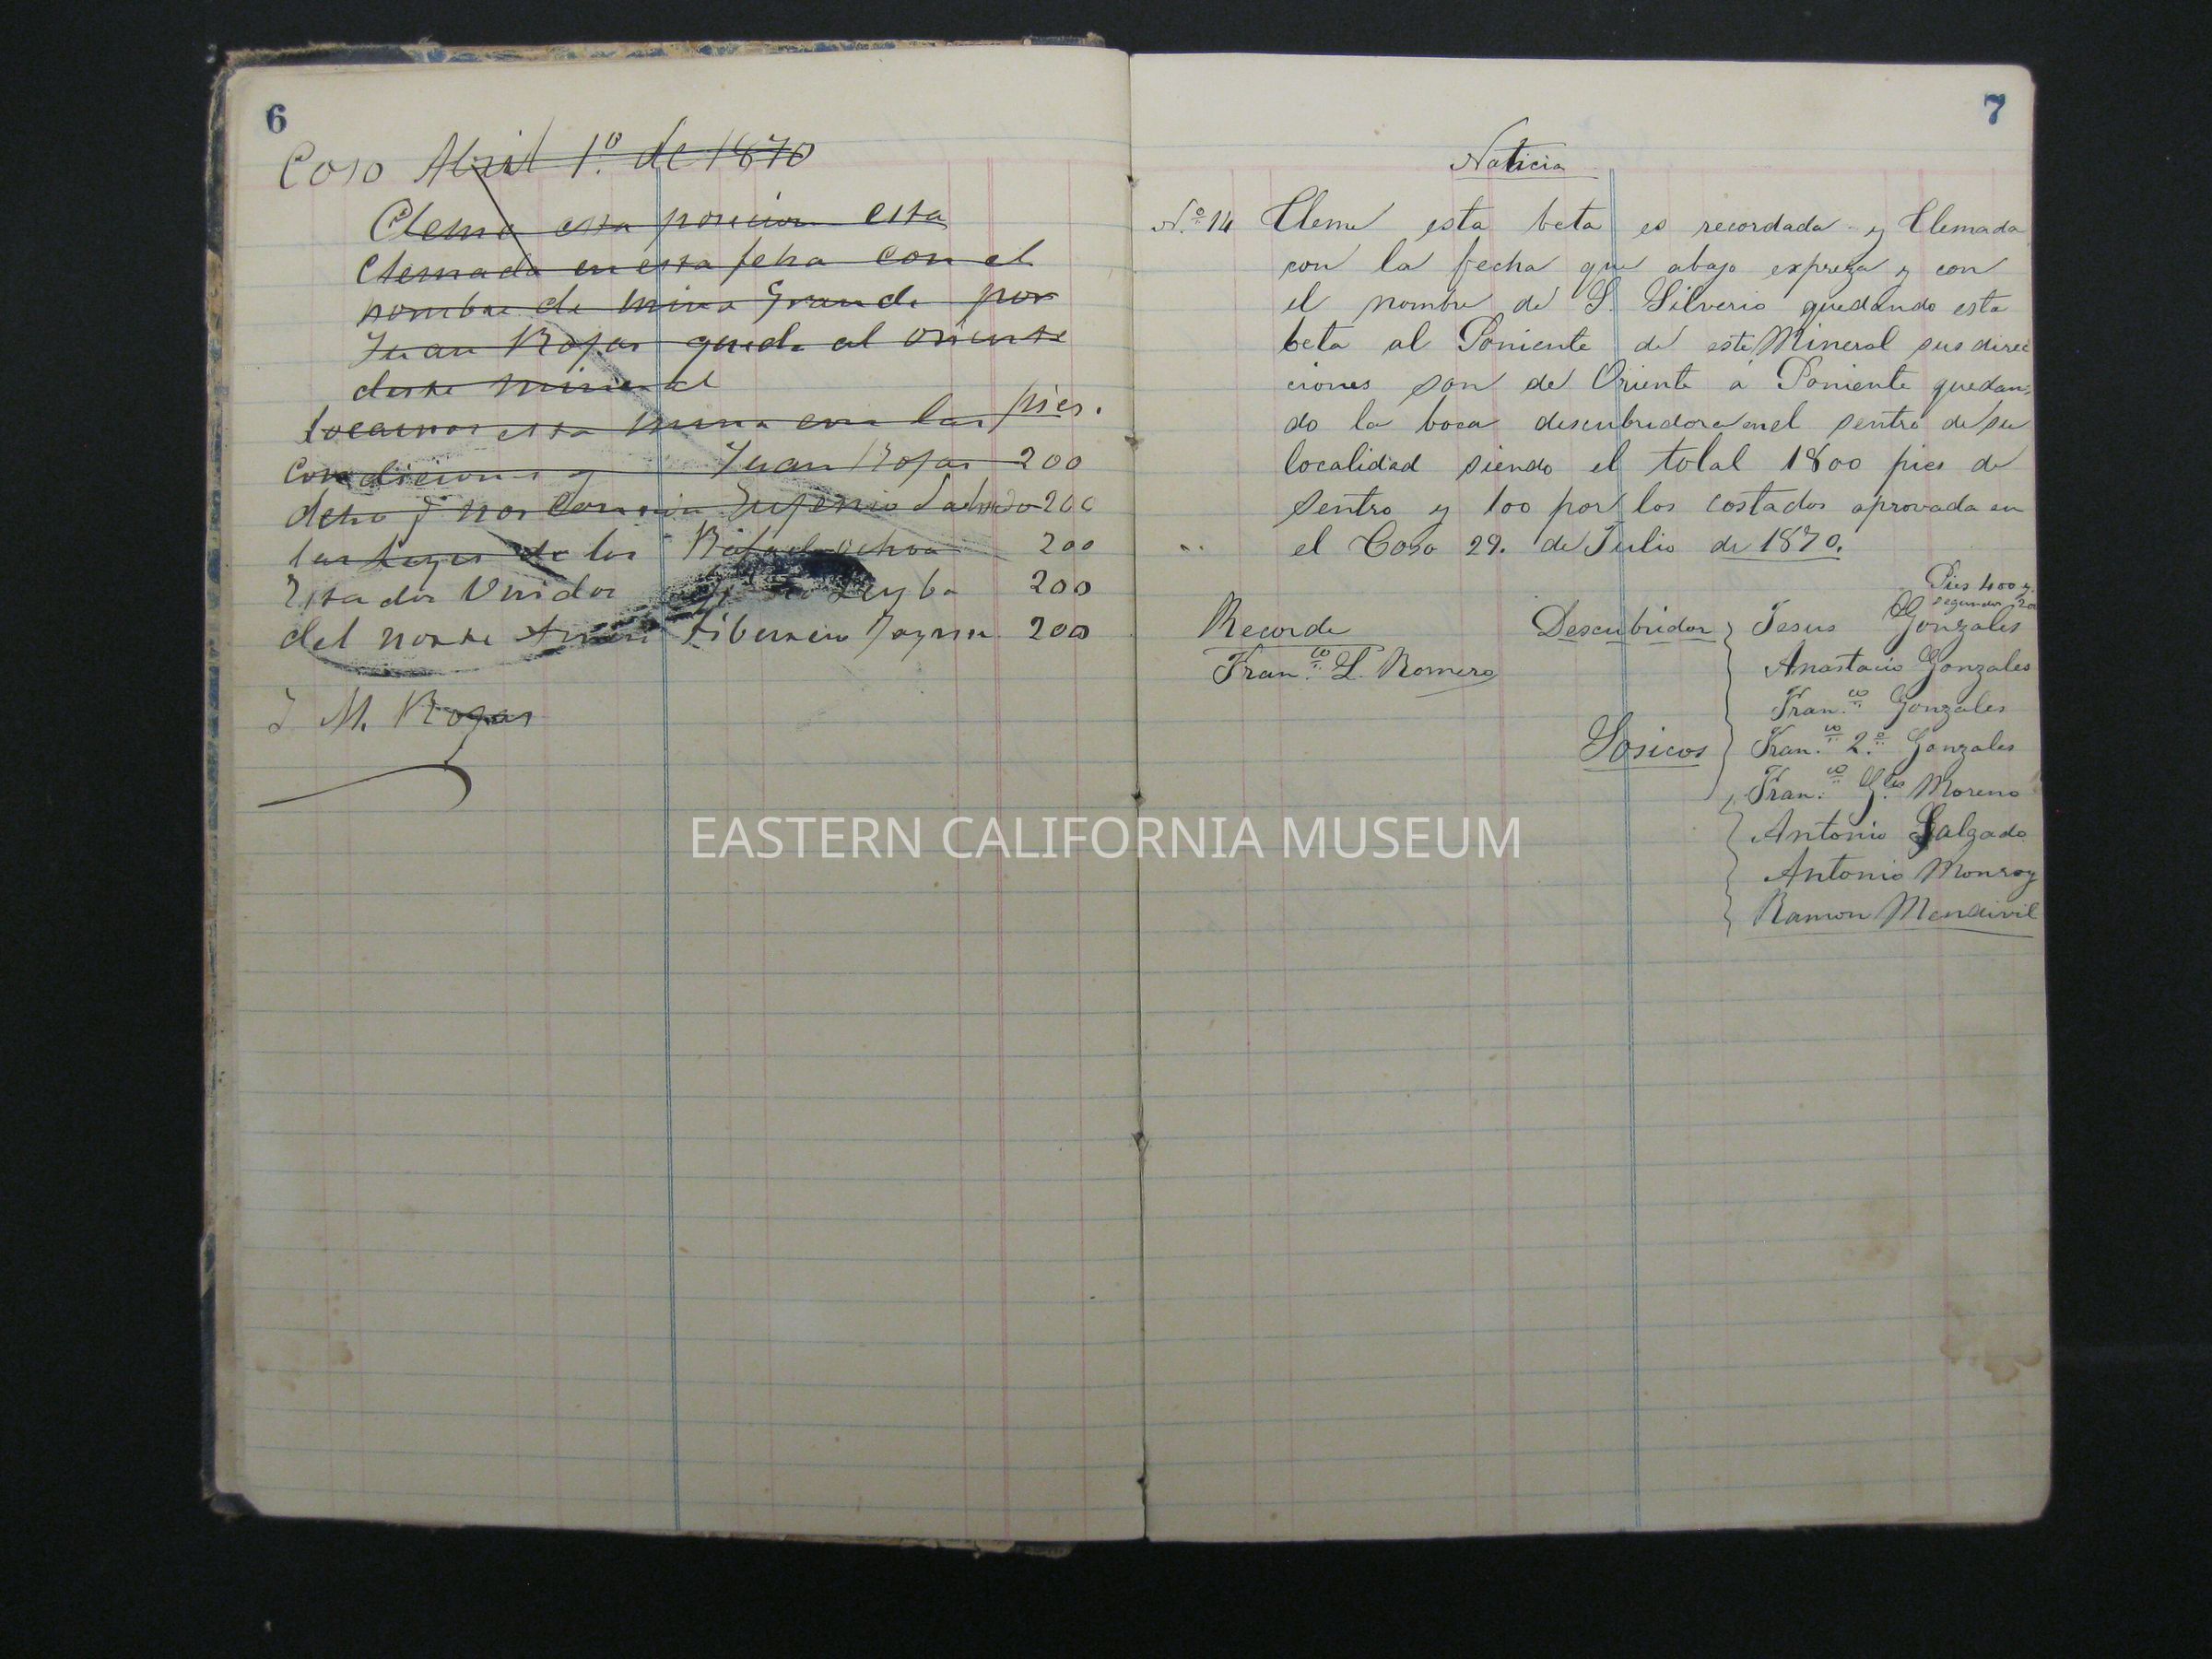 6
Coso Abril 1º de 1870
Clemo esta posicion esta
Clemada en esta feha con el
nombre de Mina Grande por
Juan Rojas queda al oriente
deste mineral
locamos esta mina con las pies.
Condiciones y Juan Rojas 200
deho q nos Eugenio 200
las leyes de los Rafael Ochoa 200
Estados Unidos Leyba 200
del norte Tibursio 200
J M. Rojas
7
Noticia
N.º 14 Cleme esta beta es recordada y Clemada
con la fecha que abajo expreza y con
el nombre de S. Silverio quedando esta
beta al Poniente de este Mineral sus direc
ciones son de Oriente á Poniente quedan-
do la boca descubridora enel sentro de su
localidad siendo el total 1800 pies de
sentro y 100 por los costados aprovada en
el Coso 29. de Julio de 1870.
Pies 400 y
segundos 200
Recorde Descubridor Jesus Gonzales
Fran.co L. Romero Anastacio Gonzales
Fran.co Gonzales
Sosicos Fran.co 2.º Gonzales
Fran.co G.les Moreno
Antonio Salgado
Antonio Monroy
Ramon Mendivil
EASTERN CALIFORNIA MUSEUM